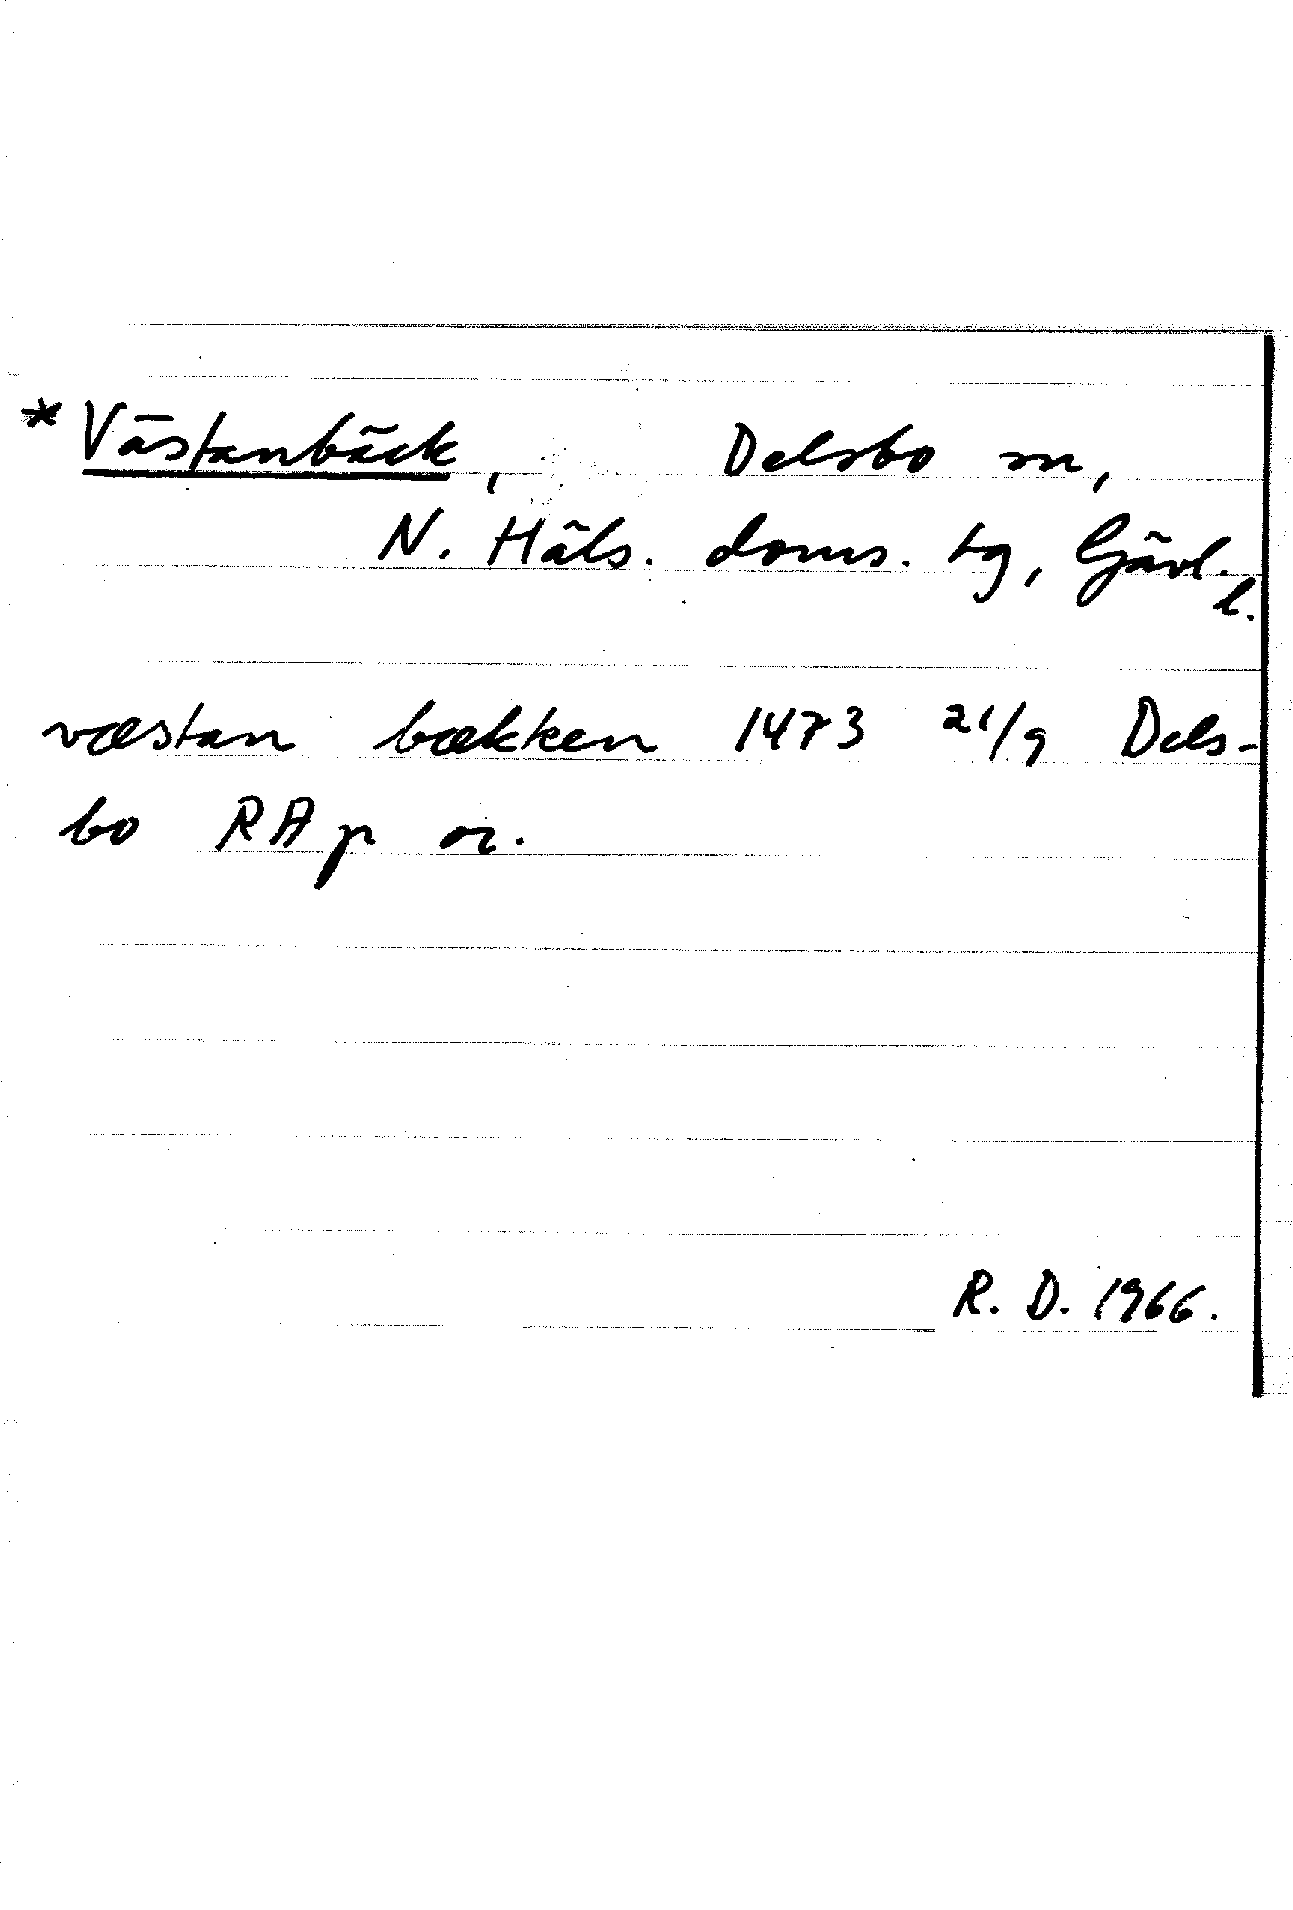 * Västanbäck, Delsbo sn,
N. Häls. doms. tg, Gävl.
l.
væstan bækken 1473 21/9 Dels-
bo RAp or.
R. D. 1966.